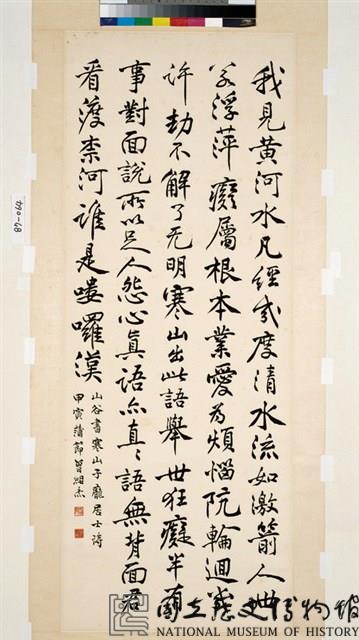 我見黃河水凡經幾度清水流如激箭人世
若浮萍癡屬根本業愛為煩惱阬輪迴幾
許劫不解了无明寒山出此語舉世狂癡半有
事對面說所以足人怨心真語亦直〻語無背面君
看渡柰河誰是嘍囉漢
山谷書寒山子龐居士詩
甲寅蒲節曾紹杰
國立歷史博物館
NATIONAL MUSEUM OF HISTORY